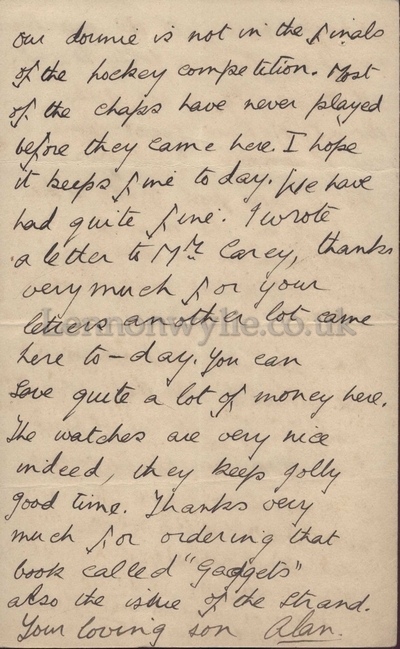 our dormie is not in the finals
of the hockey competition. Most
of the chaps have never played
before they came here. I hope
it keeps fine to day. We have
had quite fine. I wrote
a letter to Mr. Carey, thanks
very much for your
letters another lot came
Lennonwylie.co.uk
here to-day. You can
save quite a lot of money here.
The watches are very nice
indeed, they keep jolly
good time. Thanks very
much for ordering that
book called "Gadgets"
also the issue of the Strand.
Your loving son Alan.